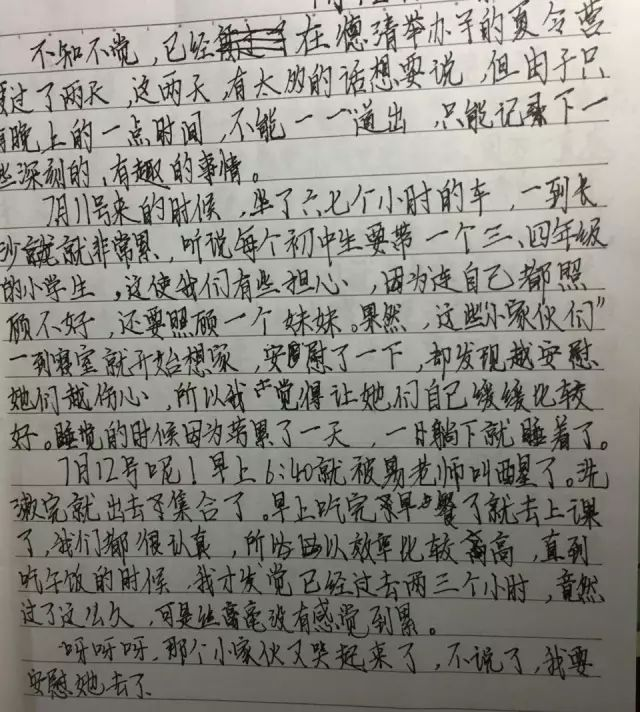 不知不觉，已经在德清举办的夏令营
度过了两天，这两天，有太多的话想要说，但由于只
有晚上的一点时间，不能一一道出，只能记录下一
些深刻的、有趣的事情。
7月11号来的时候，坐了六七个小时的车，一到长
沙就就非常累，听说每个初中生要带一个三、四年级
的小学生，这使我们有些担心，因为连自己都照
顾不好，还要照顾一个妹妹。果然，这些小家伙们”
一到寝室就开始想家，安慰了一下，却发现越安慰
她们越伤心，所以我觉得让她们自己缓缓比较
好。睡觉的时候因为劳累了一天，一躺下就睡着了。
7月12号呢！早上6:40就被易老师叫醒了。洗
漱完就出去集合了。早上吃完早餐了就去上课
了，我们都很认真，所以效率比较高，直到
吃午饭的时候，我才发觉已经过去两三个小时，竟然
过了这么久，可是丝毫没有感觉到累。
呀呀呀，那个小家伙又哭起来了，不说了，我要
安慰她去了